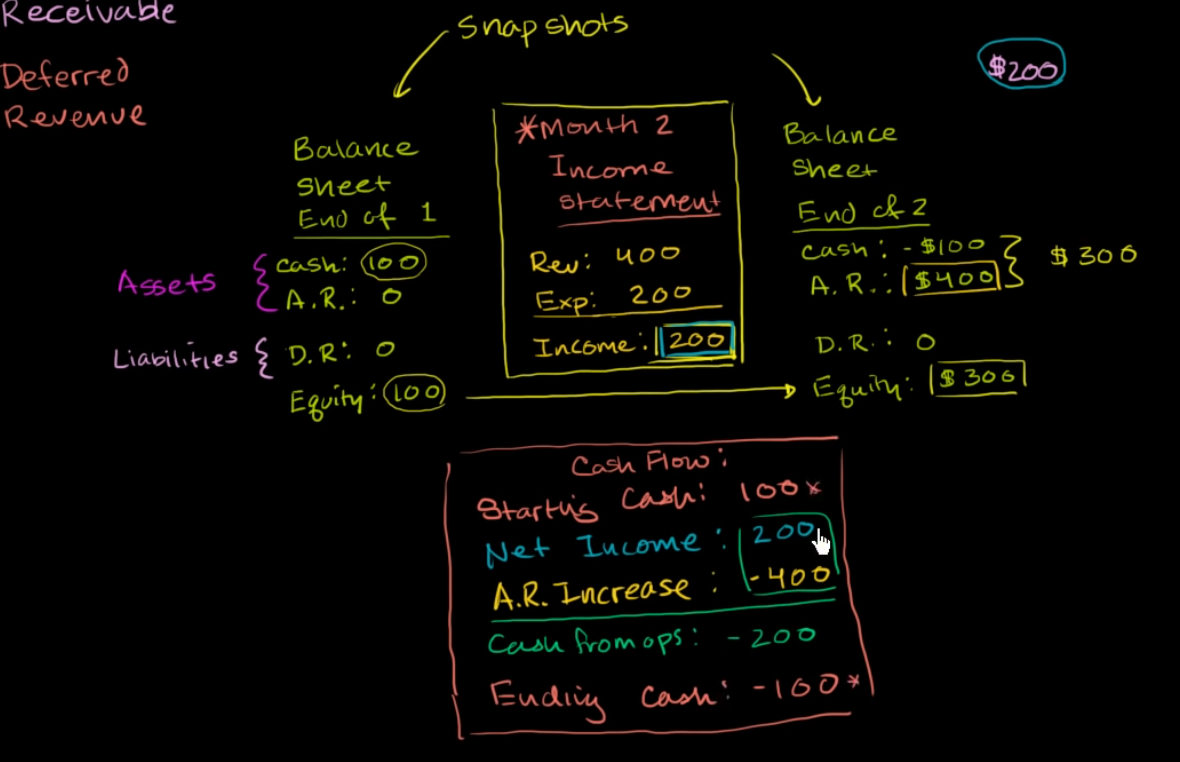 Receivable
Deferred
Revenue
Snapshots
$200
Balance
Sheet
End of 1
Assets
Cash: 100
A.R.: 0
Liabilities
D.R: 0
Equity: 100
*Month 2
Income
Statement
Rev: 400
Exp: 200
Income: 200
Balance
Sheet
End of 2
Cash: -$100
A.R.: $400
$300
D.R.: 0
Equity: $300
Cash Flow:
Starting Cash: 100*
Net Income: 200
A.R. Increase: -400
Cash from ops: -200
Ending Cash: -100*